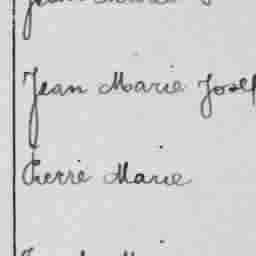 Jean Marie Josep
Pierre Marie